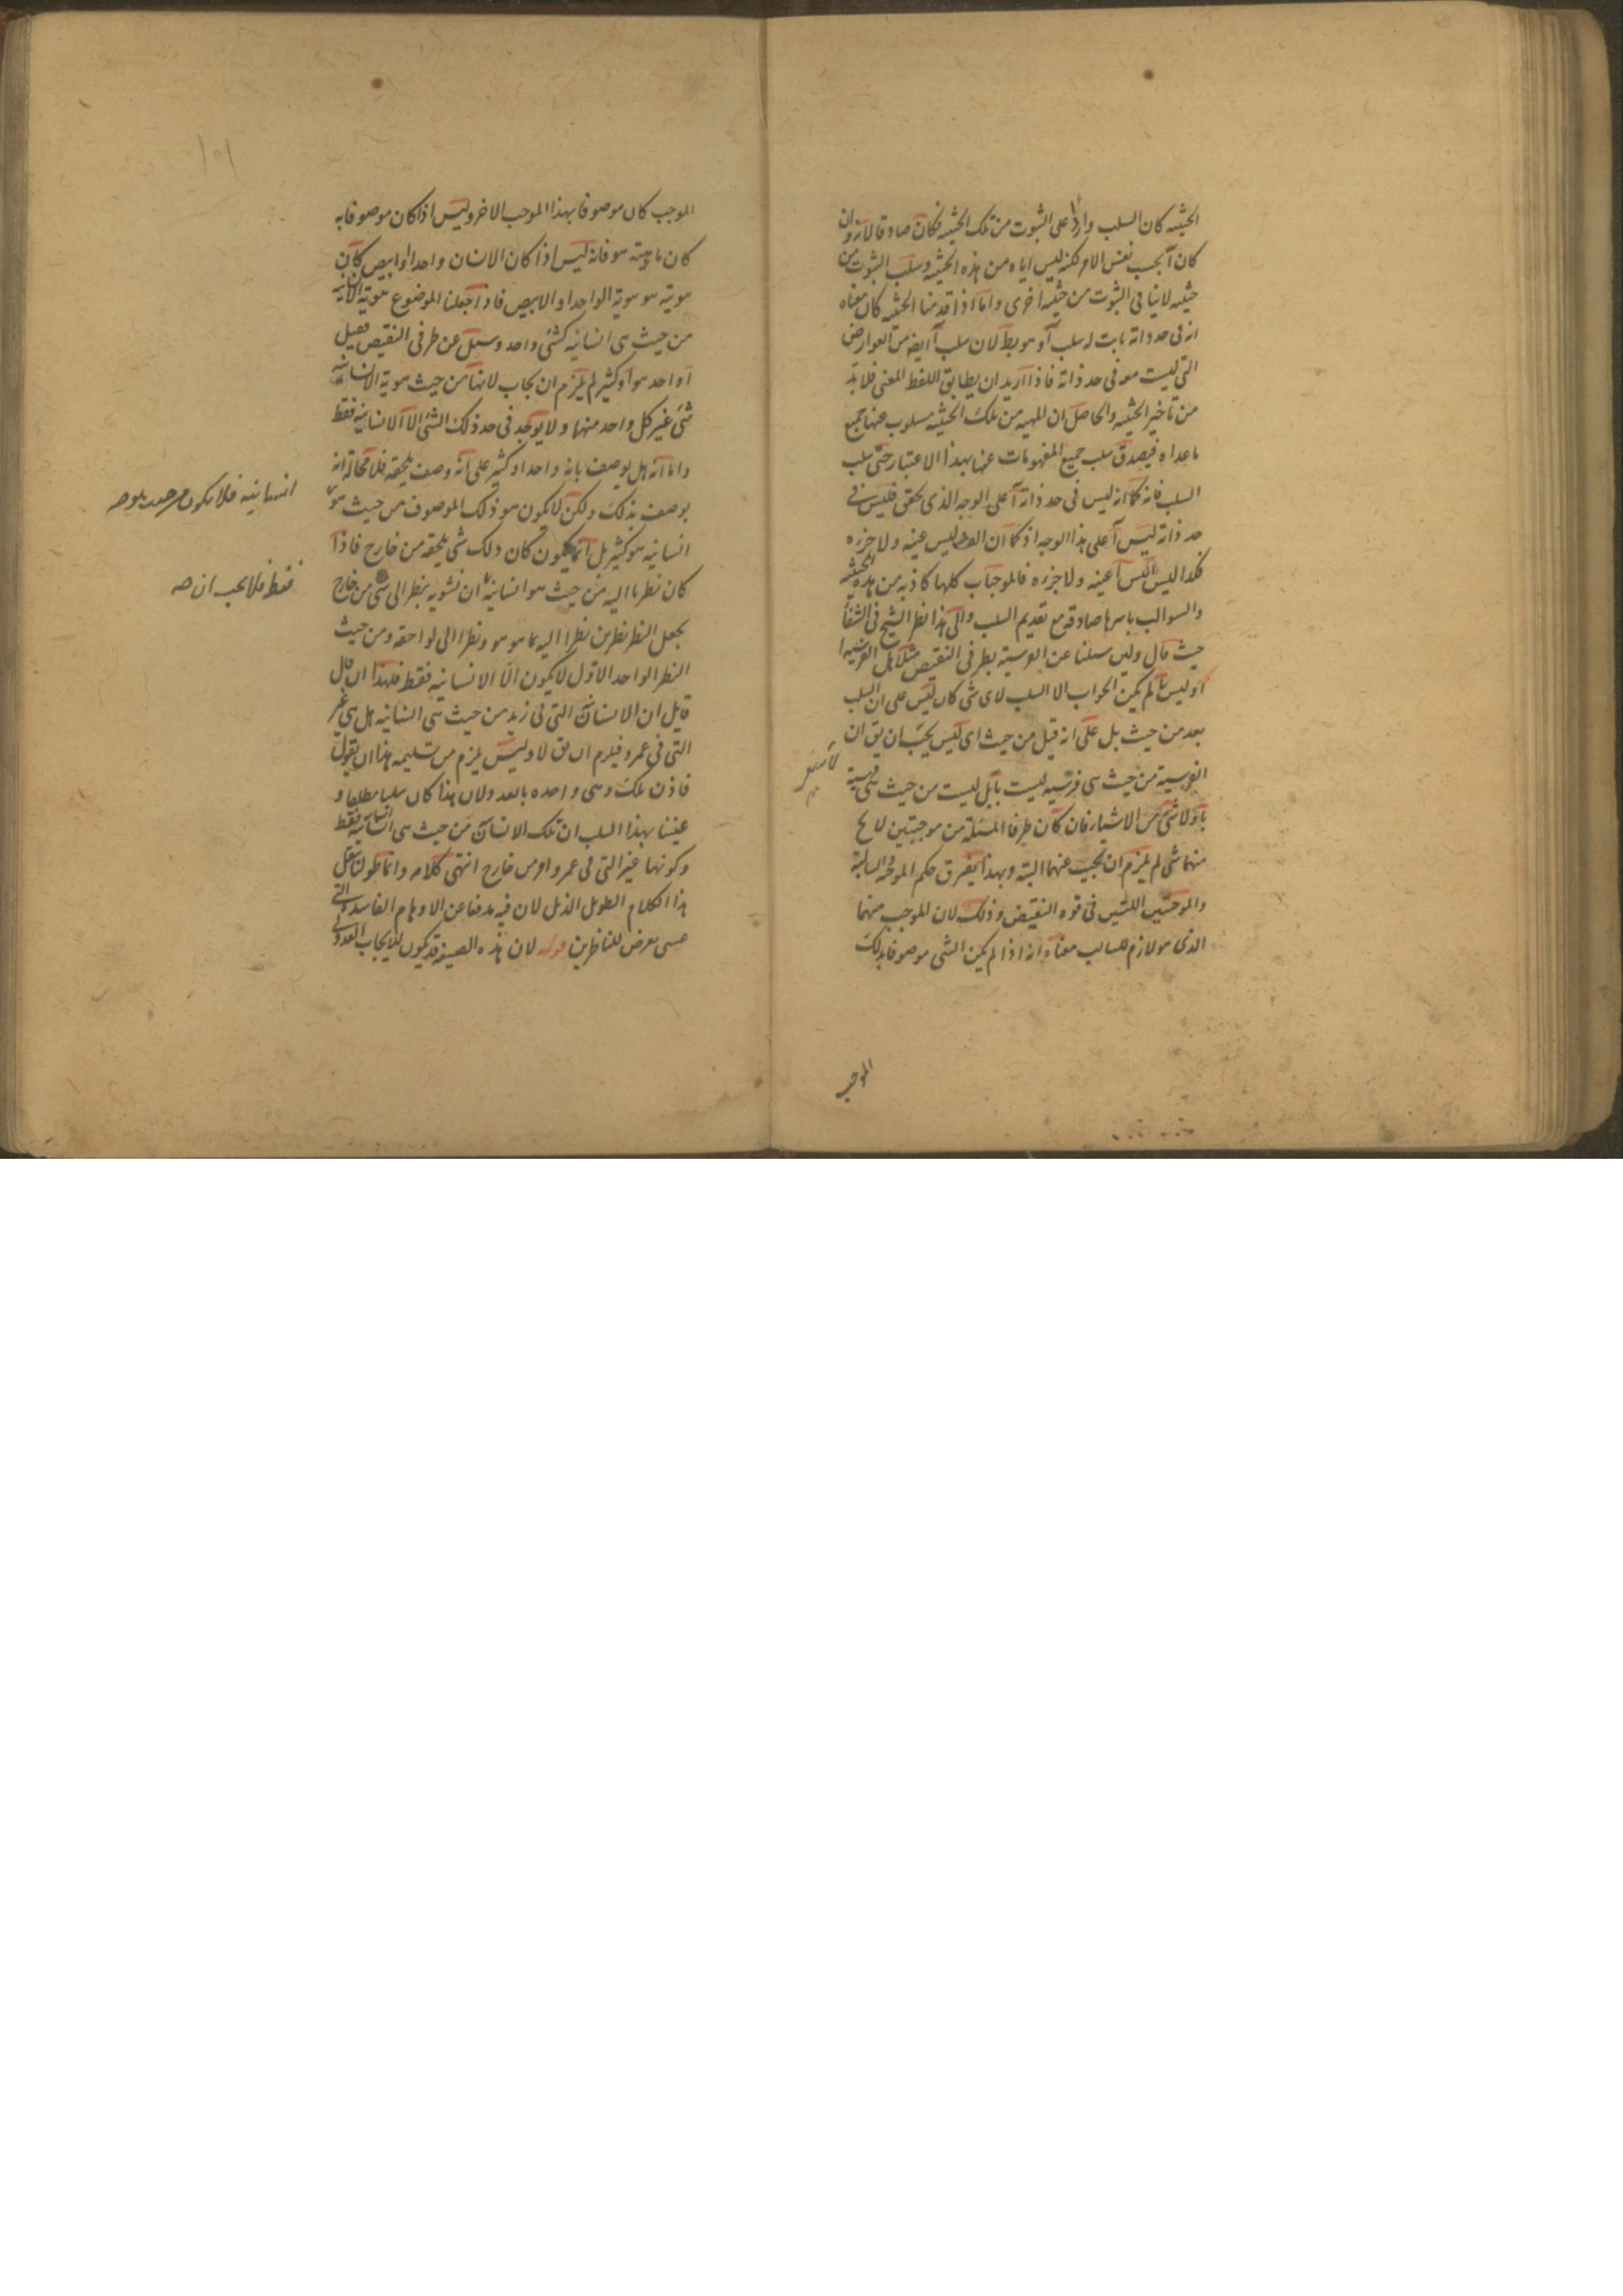 الحيثيه كان السلب واردا على الثبوت من تلك الحيثيه فكان صادقا لانه وان
كان آ بحسب نفس الامر لكنه ليس اياه من هذه الحيثيه وسلب الثبوت من
حيثيه لا ينافى الثبوت من حيثيه اخرى واما اذا قدمنا الحيثيه كان معناه
انه فى حد ذاته ثابت له سلب آ وهو بط لان سلب آ ايضا من العوارض
التى ليست هو فى حد ذاته فاذا اريد ان يطابق اللفظ المعنى فلابد
من تاخير الحيثيه والحاصل ان المهيه من تلك الحيثيه مسلوب عنها جميع
ماعداه فيصدق سلب جميع المفهومات عنها بهذا الاعتبار حتى سلب
السلب فانه كما انه ليس فى حد ذاته آ على الوجه الذى تحقق فليس فى
حد ذاته ليس آ على هذا الوجه اذ كما ان الف ليس عينه ولا جزءه
فكذا ليس اليس آ عينه ولا جزءه فالموجبات كلها كاذبه من هذه الحيثيه
والسوالب باسرها صادقه مع تقديم السلب والى هذا نظر الشيخ فى الشفا
حيث قال ولئن سئلنا عن الفرسية بطرفى النقيض مثلا هل الفرسيه ا
او ليس با لم يكن الجواب الا السلب لاى شى كان ليس على ان السلب
بعد من حيث بل على انه قبل من حيث اى ليس يجب ان يق ان
الفرسية من حيث هى فرسيه ليست بآ بل ليست من حيث هى فرسية
بآ ولا شى من الاشياء فان كان طرفا المسئلة من موجبتين لا يخ
منهما شى لم يلزم ان نجيب عنهما البتة وبهذا يفترق حكم الموجبة والسالبة
والموجبتين اللتين فى قوه النقيض وذلك لان الموجب منهما
الذى هو لازم للسالب معناه انه اذا لم يكن الشى موصوفا بذلك
الموجب
الموجب كان موصوفا بهذا الموجب الاخر وليس اذا كان موصوفا به
كان ماهيته هو فانه ليس اذا كان الانسان واحدا او ابيض كان
هوية هو هوية الواحد او الابيض فاذا جعلنا الموضوع هوية الانسانية
من حيث هى انسانيه كشئ واحد وسئل عن طرفى النقيض فقيل
أواحد هو أو كثير لم يلزم ان يجاب لانها من حيث هوية الانسانيه
شئ غير كل واحد منهما ولا يوجد فى حد ذلك الشئ الا الانسانية فقط
واما انه هل يوصف بانه واحد او كثير على انه وصف يلحقه فلا محالة انه
يوصف بذلك ولكن لا يكون هو ذلك الموصوف من حيث هو
انسانيه فلا يكون من حيث هو صح
انسانيه هو كثير بل انما يكون كان ذلك شى يلحقه من خارج فاذا
كان نظرنا اليه من حيث هو انسانية ان نشوبه بنظر الى شى من خارج
فقط فلا يجب ان صح
يجعل النظر نظرين نظرا اليه بما هو هو ونظرا الى لواحقه ومن حيث
النظر الواحد الاول لا يكون الا الانسانيه فقط فلهذا ان قال
قايل ان الانسانية التى فى زيد من حيث هى انسانيه هل هى غير
التى فى عمرو فيلزم ان يق لا وليس يلزم من تسليمه هذا ان يقول
فاذن تلك وهى واحده بالعدد ولان هذا كان سلبا مطلقا و
عنينا بهذا السلب ان تلك الانسانية من حيث هى انسانية فقط
وكونها غير التى فى عمرو امر من خارج انتهى كلامه وانما طولنا بنقل
هذا الكلام الطويل الذيل لان فيه مدفعا عن الاوهام الفاسدة التى
عسى يعرض للناظرين قوله لان هذه الصيغة قد يكون للايجاب العدولى